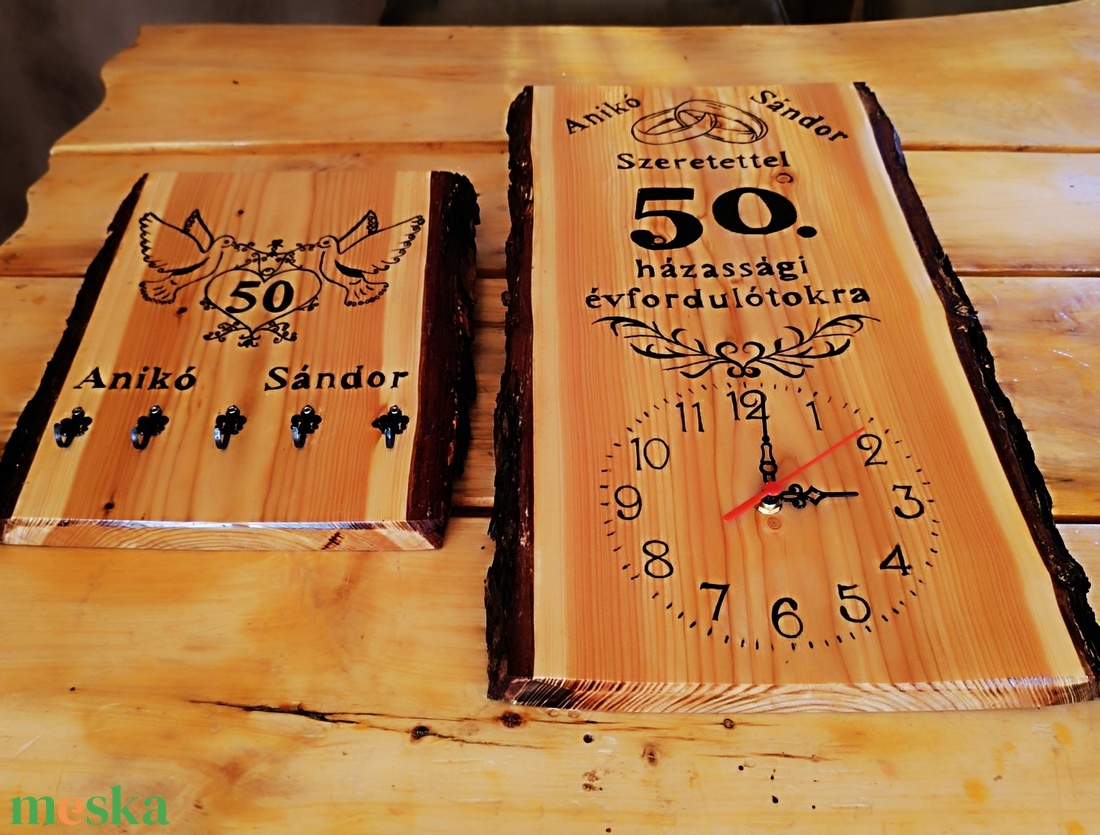 50
Anikó Sándor
Anikó Sándor
Szeretettel
50.
házassági
évfordulótokra
12
1
2
3
4
5
6
7
8
9
10
11
meska